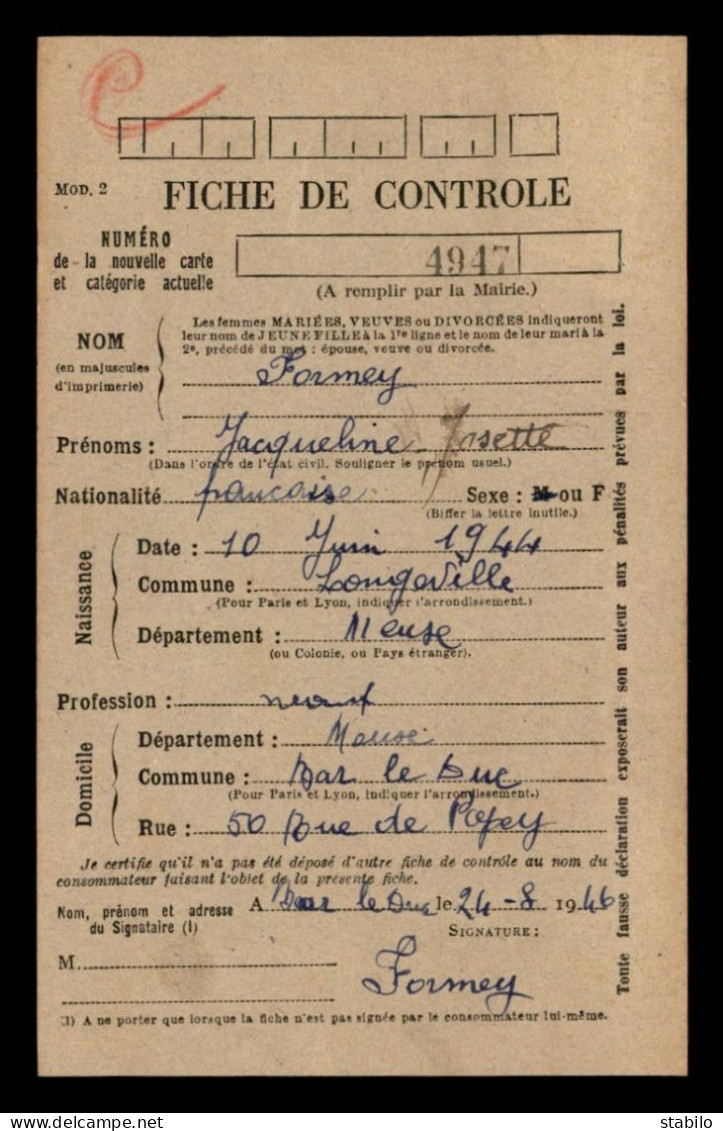 MOD. 2
FICHE DE CONTROLE
NUMÉRO
de la nouvelle carte
et catégorie actuelle
4947
(A remplir par la Mairie.)
NOM
(en majuscules
d'imprimerie)
Les femmes MARIÉES, VEUVES ou DIVORCÉES indiqueront
leur nom de JEUNE FILLE à la 1re ligne et le nom de leur mari à la
2e, précédé du mot : épouse, veuve ou divorcée.
Formey
Prénoms : Jacqueline
(Dans l'ordre de l'état civil. Souligner le prénom usuel.)
Nationalité francaise Sexe : M ou F
(Biffer la lettre inutile.)
Naissance
Date : 10 Juin 1944
Commune : Longeville
(Pour Paris et Lyon, indiquer l'arrondissement.)
Département : Meuse
(ou Colonie, ou Pays étranger).
Profession : neant
Domicile
Département : Meuse
Commune : Bar le Duc
(Pour Paris et Lyon, indiquer l'arrondissement.)
Rue : 50 Rue de Popey
Je certifie qu'il n'a pas été déposé d'autre fiche de contrôle au nom du
consommateur faisant l'objet de la présente fiche.
Nom, prénom et adresse
du Signataire (1)
A Bar le Duc le 24-8 1946
SIGNATURE :
M.
Formey
(1) A ne porter que lorsque la fiche n'est pas signée par le consommateur lui-même.
Toute fausse déclaration exposerait son auteur aux pénalités prévues par la loi.
delcampe.net
stabilo